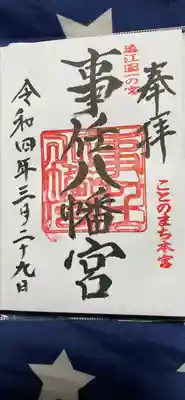 奉拝
遠江國一の宮
ことのまち本宮
事任八幡宮
令和四年三月二十九日